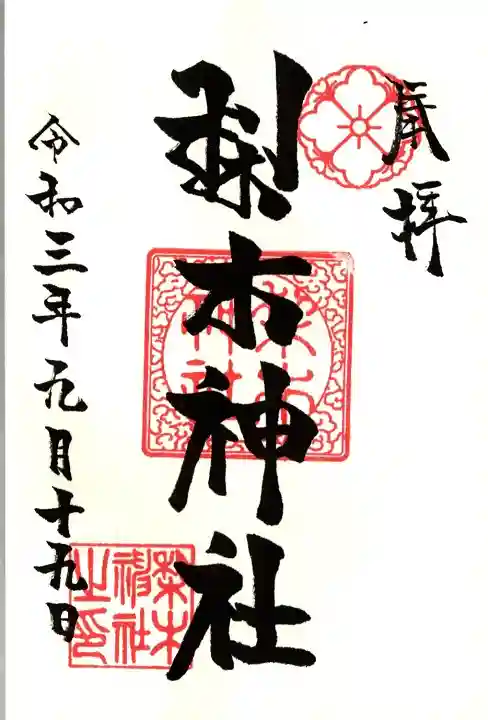 奉拝
梨木神社
梨木
神社
令和三年九月十九日
梨木
神社
之印